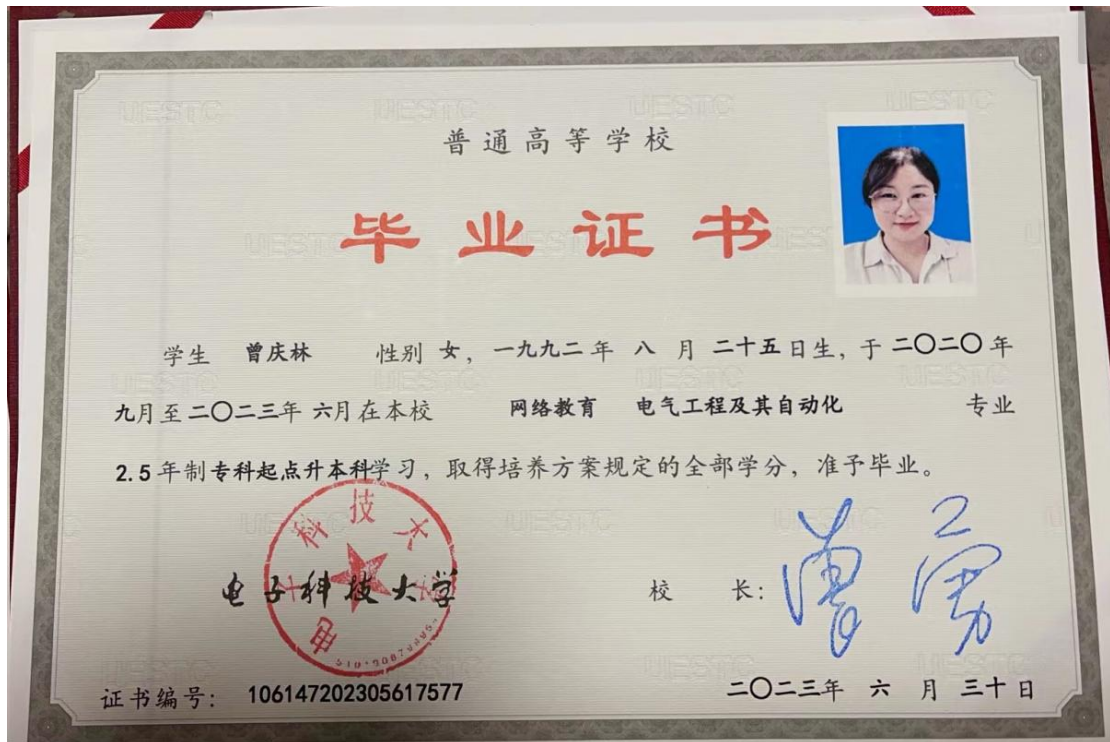 普通高等学校
毕业证书
学生 曾庆林 性别 女，一九九二年 八 月 二十五日生，于二〇二〇年
九月至二〇二三年 六月在本校 网络教育 电气工程及其自动化 专业
2.5年制专科起点升本科学习，取得培养方案规定的全部学分，准予毕业。
电子科技大学
电子科技大学
校 长：
证书编号： 106147202305617577
二〇二三年 六 月 三十日
UESTC